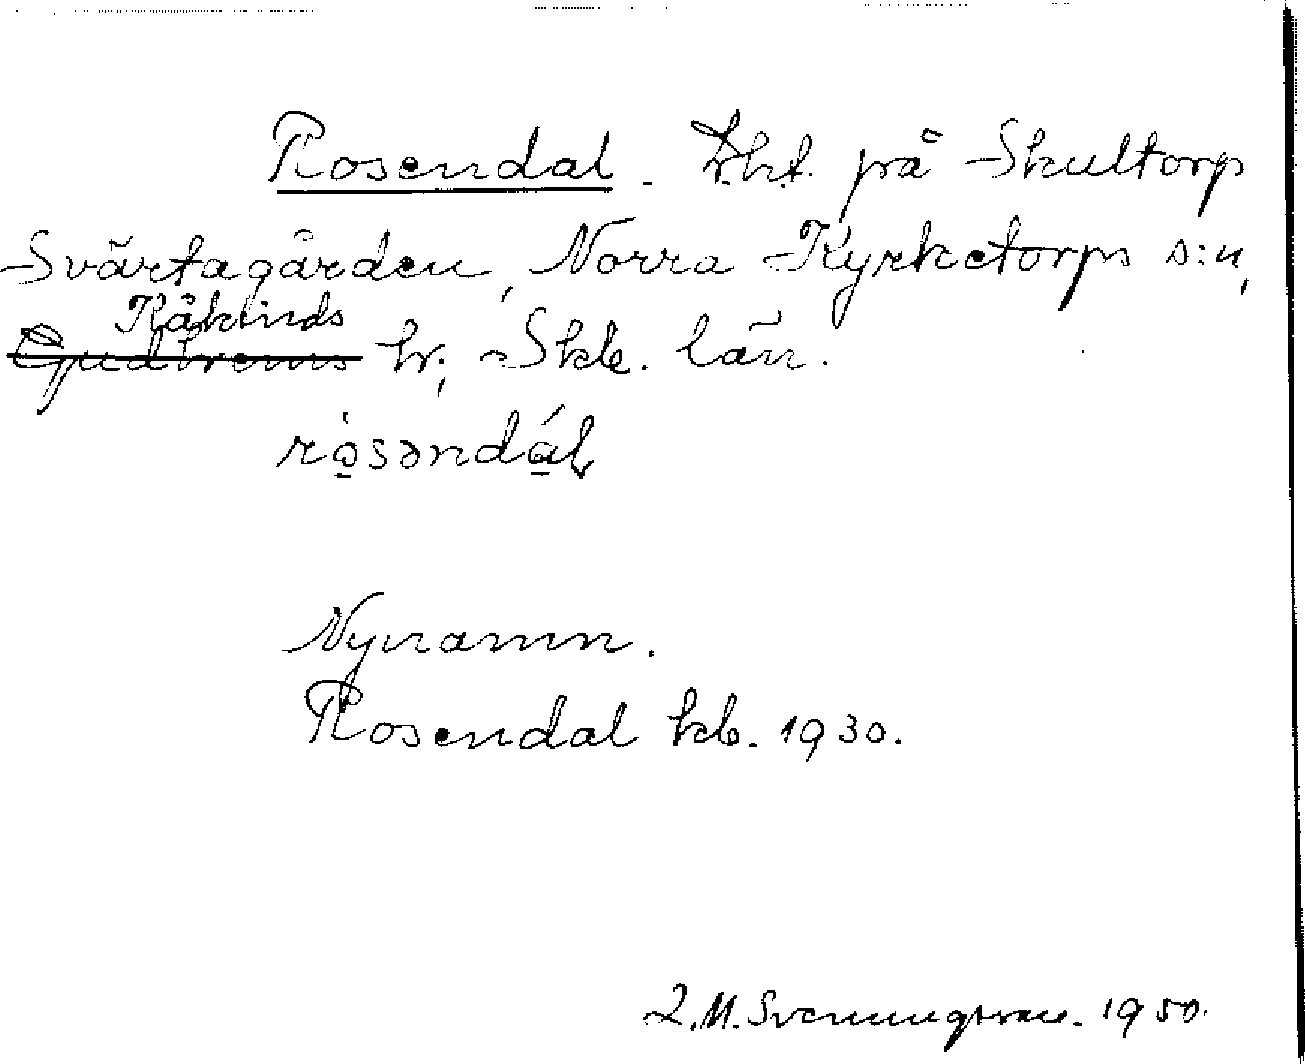 Rosendal. Lht. på Skultorp
Svärtagården, Norra Kyrketorps s:n,
Kåkinds
Gudhems hr., Skb. län.
rosəndal
Nynamn.
Rosendal kb. 1930.
M. Svenningsson. 1950.